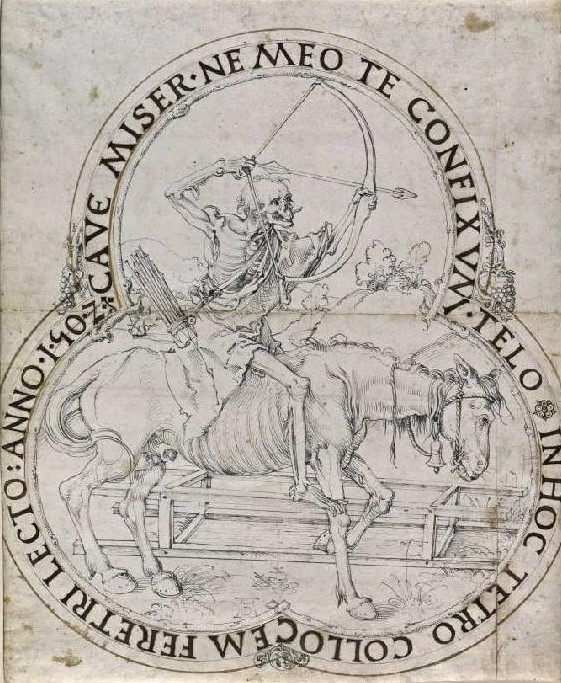 CAVE MISER·NE MEO TE CONFIXVM·TELO IN HOC TETRO COLLOCEM FERETRI LECTO: ANNO·1·502